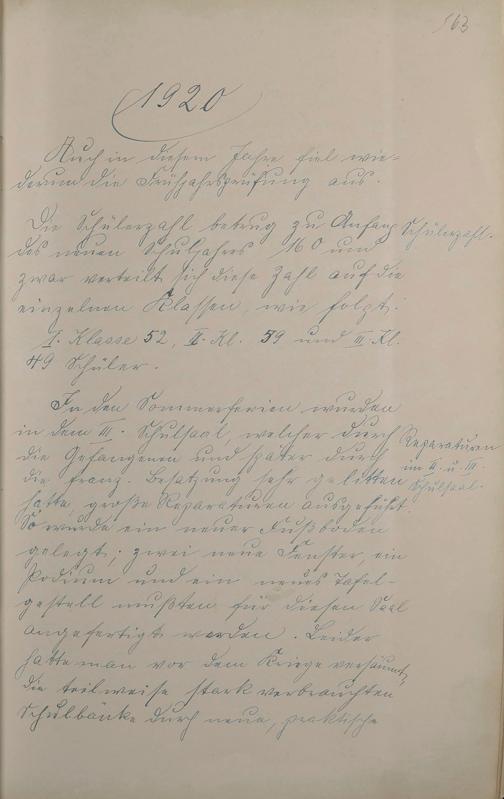 163
1920
Auch in diesem Jahre fiel wie-
derum die Frühjahrsprüfung aus.
Die Schülerzahl betrug zu Anfang
Schülerzahl.
des neuen Schuljahres 160 und
zwar verteilt sich diese Zahl auf die
einzelnen Klassen, wie folgt:
I. Klasse 52, II. Kl. 59 und III. Kl.
49 Schüler.
In den Sommerferien wurden
in dem III. Schulsaal, welcher durch
die Gefangenen und später durch
die franz. Besatzung sehr gelitten
hatte, große Reparaturen ausgeführt.
Reparaturen
im II. u. III.
Schulsaal.
So wurde ein neuer Fußboden
gelegt; zwei neue Fenster, ein
Podium und ein neues Tafel-
gestell mußten für diesen Saal
angefertigt werden. Leider
hatte man vor dem Kriege versäumt,
die teilweise stark verbrauchten
Schulbänke durch neue, praktische